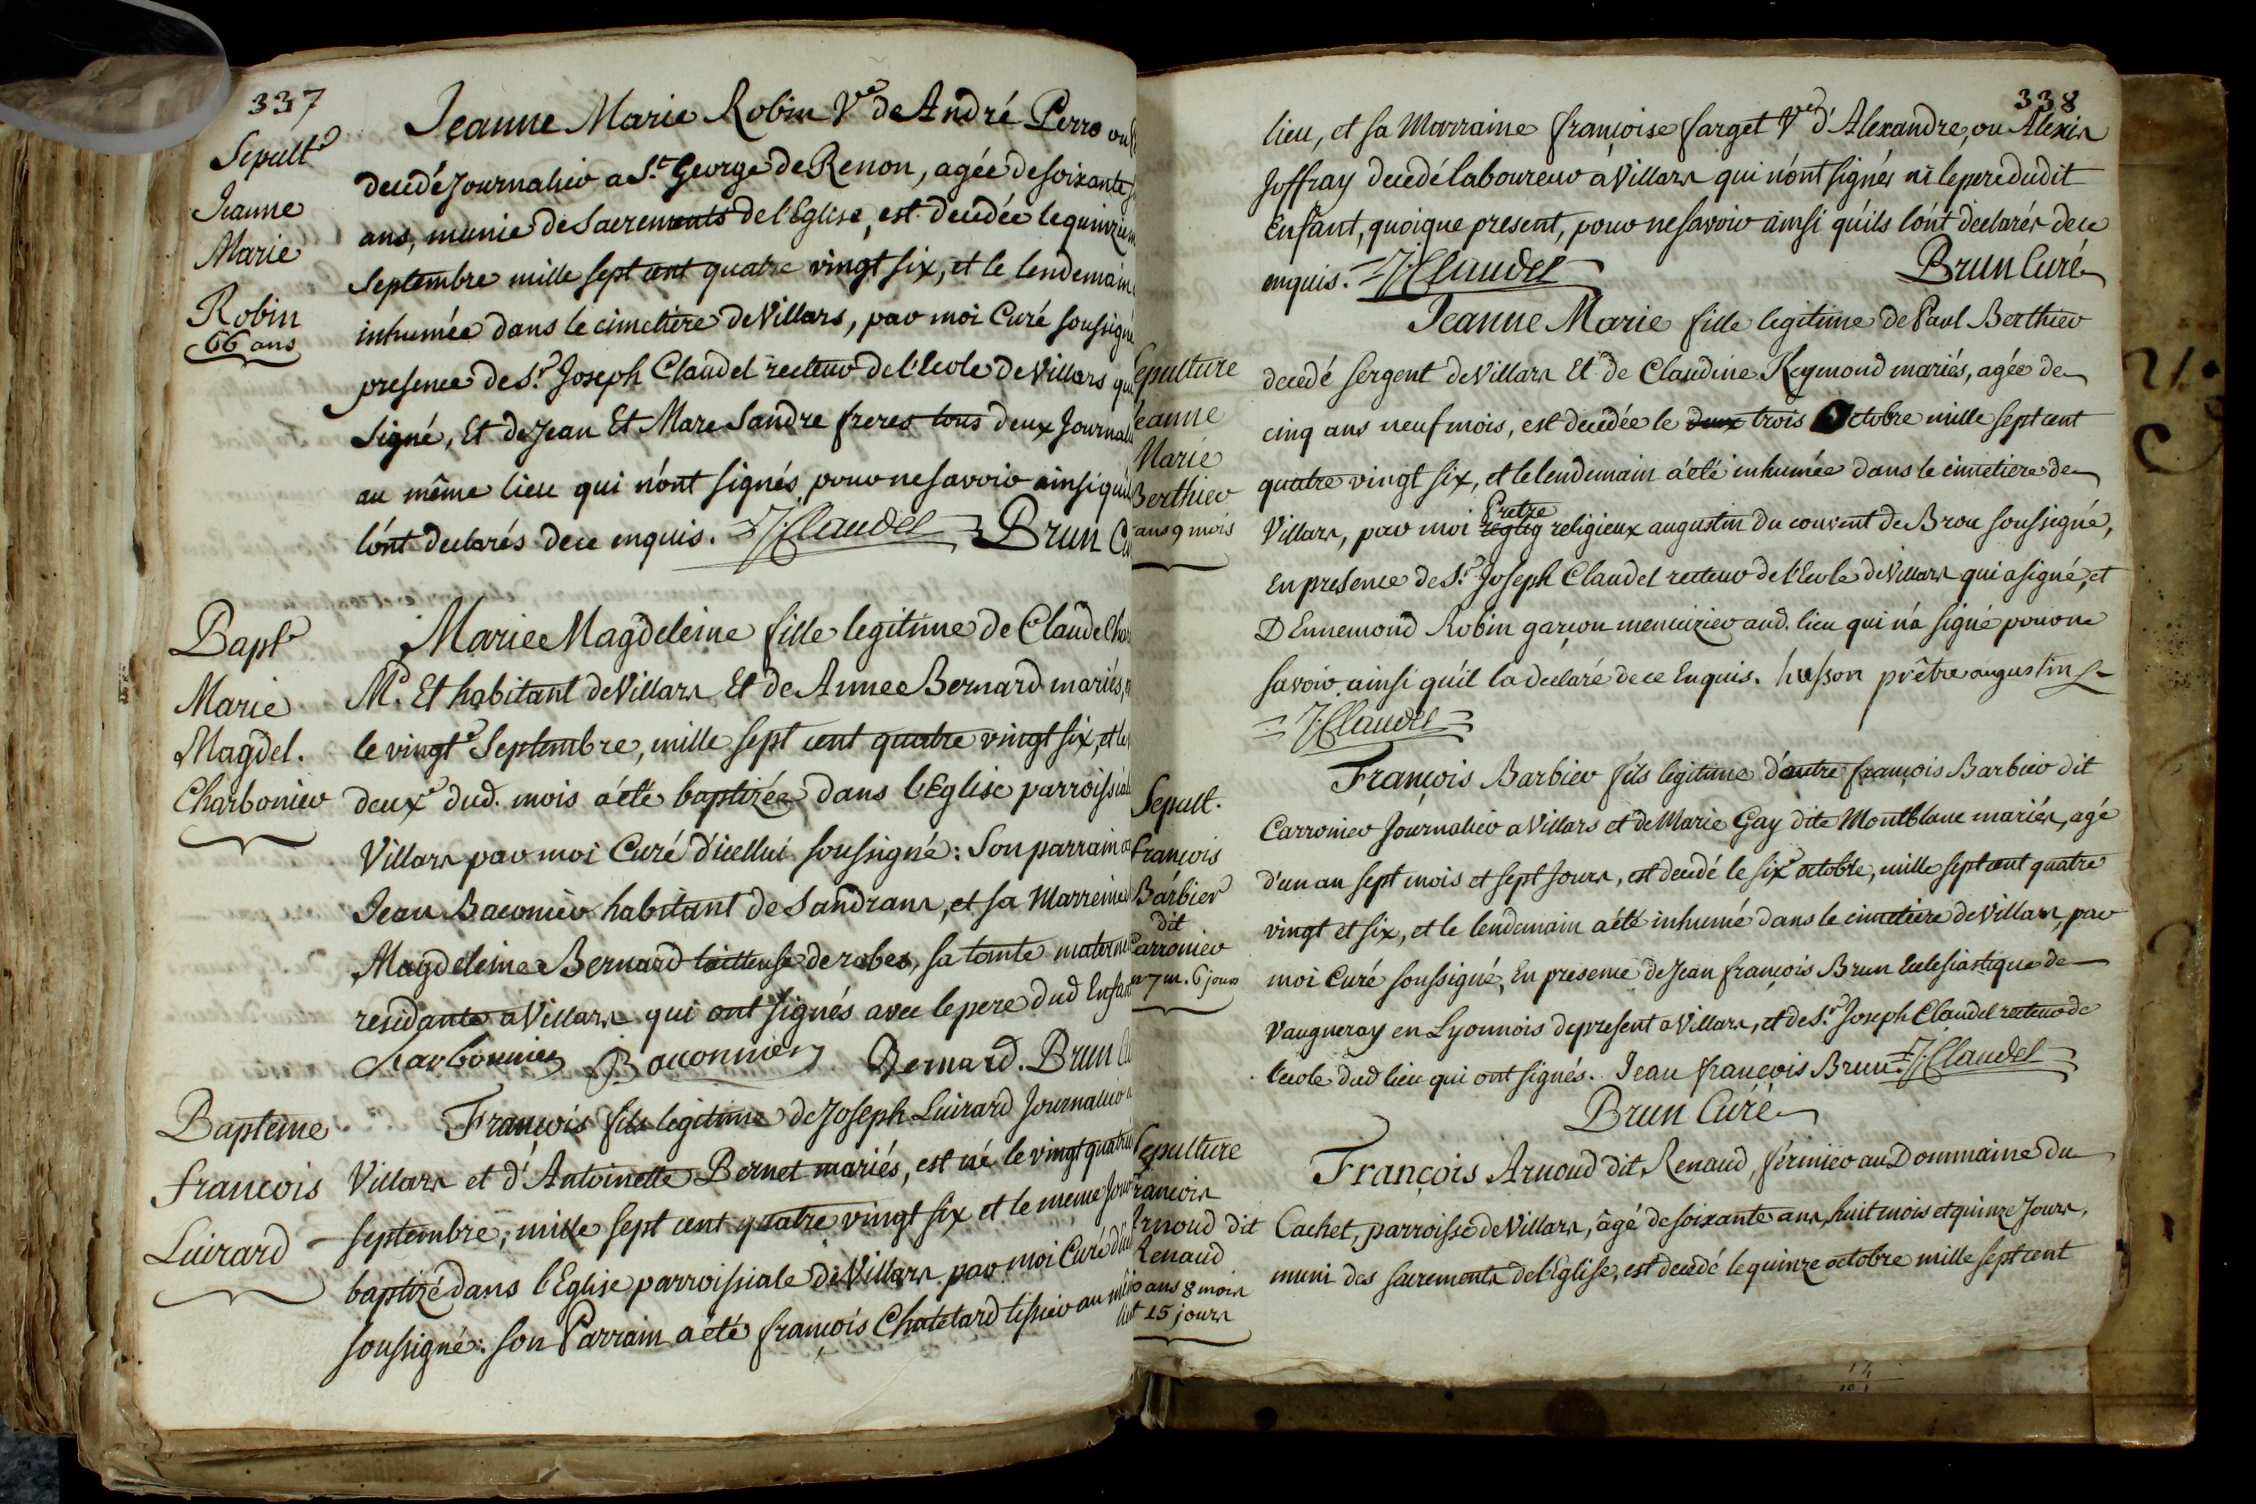 337
Sepult.e
Jeanne
Marie
Robin
66 ans
Jeanne Marie Robin V.e de André Perro ou
decedé Journalier a S.t George de Renon, agée de soixante
ans, munie de Sacrements de l'Eglise, est decedée le quinzie
Septembre mille sept cent quatre vingt six, et le lendemain
inhumée dans le cimetière de Villars, par moi Curé soussigné
presence de S.r Joseph Claudel recteur de l'ecole de Villars qui
signé, Et de Jean Et Marc Sandre freres tous deux Journal
au même lieu qui n'ont signés pour ne savoir ainsi qu'il
l'ont declarés de ce enquis. J. Claudel Brun Cu
Bapt.e
Marie
Magdel.
Charbonier
Marie Magdeleine fille legitime de Claude Cha
M.d Et habitant de Villars Et de Anne Bernard mariés,
le vingt.e Septembre, mille sept cent quatre vingt six, et le
deux.e dud. mois a été baptizée dans l'Eglise parroissial
Villars par moi Curé d'icellui soussigné: Son parrain a
Jean Baconier habitant de Sandrans, et sa Marreine
Magdeleine Bernard tailleuse de robes, sa tante materne
residante a Villars qui ont signés avec le pere dud Enfan
Charbonnier J Baconnier Bernard. Brun Cu
Bapteme
François
Luirard
François fils legitime de Joseph Luirard Journalier a
Villars et d'Antoinette Bernet mariés, est né le vingt quatri
septembre, mille sept cent quatre vingt six et le meme jour
baptizé dans l'Eglise parroissiale de Villars par moi Curé dud
soussigné: son Parrain a été françois Chatelard tissier au mê
lieu
338
lieu, et sa Marraine françoise farget V.e d'Alexandre, ou Alexis
Joffray decedé laboureur a Villars qui n'ont signés ni le pere dudit
Enfant, quoique present, pour ne savoir ainsi qu'ils l'ont declarés de ce
enquis. J. Claudel Brun Curé
epulture
eanne
Marie
Berthier
ans 9 mois
Jeanne Marie fille legitime de Paul Berthier
decedé sergent de Villars Et de Claudine Reymond mariés, agée de
cinq ans neuf mois, est decedée le deux trois Octobre mille sept cent
quatre vingt six, et le lendemain a été inhumée dans le cimetiere de
Pretre
Villars, par moi religieux augustin du couvent de Brou soussigné,
En presence de S.r Joseph Claudel recteur de l'Ecole de Villars qui a signé, et
D Ennemond Robin garçon menuizier aud. lieu qui n'a signé pour ne
savoir ainsi qu'il la declaré de ce Enquis. husson prêtre augustin
J. Claudel
Sepult.
François
Barbier
dit
Carronier
n 7 m. 6 jours
François Barbier fils legitime d'autre françois Barbier dit
Carronier Journalier a Villars et de Marie Gay dite Montblanc mariés, agé
d'un an sept mois et sept Jours, est decedé le six.e octobre, mille sept cent quatre
vingt et six, et le lendemain a été inhumé dans le cimetiere de Villars, par
moi Curé soussigné, En presence de Jean françois Brun Ecclesiastique de
Vaugneray en Lyonnois de present a Villars, et de S.r Joseph Claudel recteur de
l'ecole dud lieu qui ont signés. Jean françois Brun. J. Claudel
Brun Curé
Sepulture
rançois
Arnoud dit
Renaud
0 ans 8 mois
15 jours
François Arnoud dit Renaud, fermier au Dommaine du
Cachet, parroisse de Villars, âgé de soixante ans, huit mois et quinze Jours,
muni des sacrements de l'Eglise, est decedé le quinze octobre mille sept cent